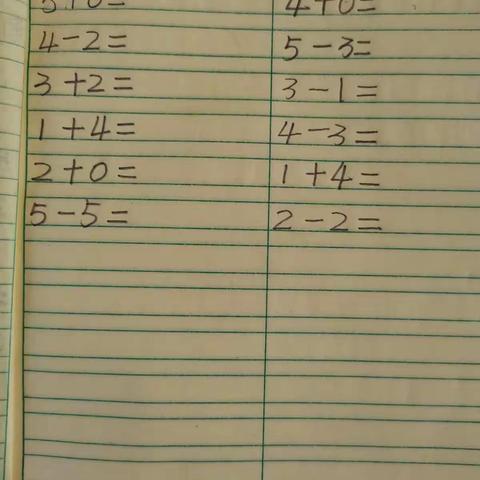 4+0=
4-2= 5-3=
3+2= 3-1=
1+4= 4-3=
2+0= 1+4=
5-5= 2-2=